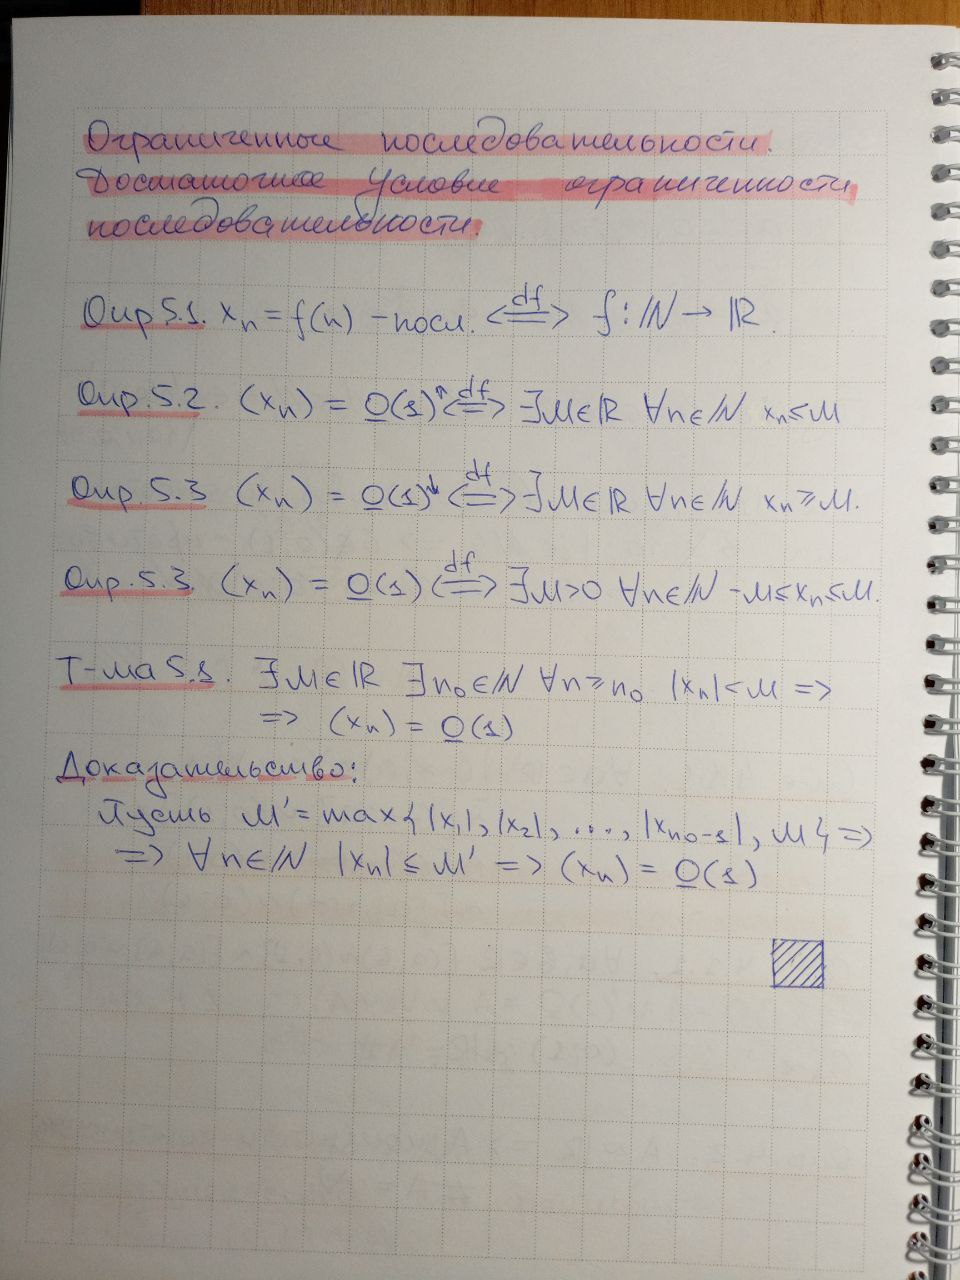 Ограниченные последовательности.
Достаточное условие ограниченности
последовательности.
Опр 5.1. xₙ = f(n) – посл. <=df=> f: ℕ → ℝ.
Опр.5.2. (xₙ) = O(1)↑ <=df=> ∃M∈ℝ ∀n∈ℕ xₙ ≤ M
Опр.5.3 (xₙ) = O(1)↓ <=df=> ∃M∈ℝ ∀n∈ℕ xₙ ≥ M.
Опр.5.3. (xₙ) = O(1) <=df=> ∃M>0 ∀n∈ℕ -M ≤ xₙ ≤ M.
Т-ма 5.1. ∃M∈ℝ ∃n₀∈ℕ ∀n ≥ n₀ |xₙ| < M =>
=> (xₙ) = O(1)
Доказательство:
Пусть M' = max{|x₁|, |x₂|, ...., |xₙ₀₋₁|, M} =>
=> ∀n∈ℕ |xₙ| ≤ M' => (xₙ) = O(1)